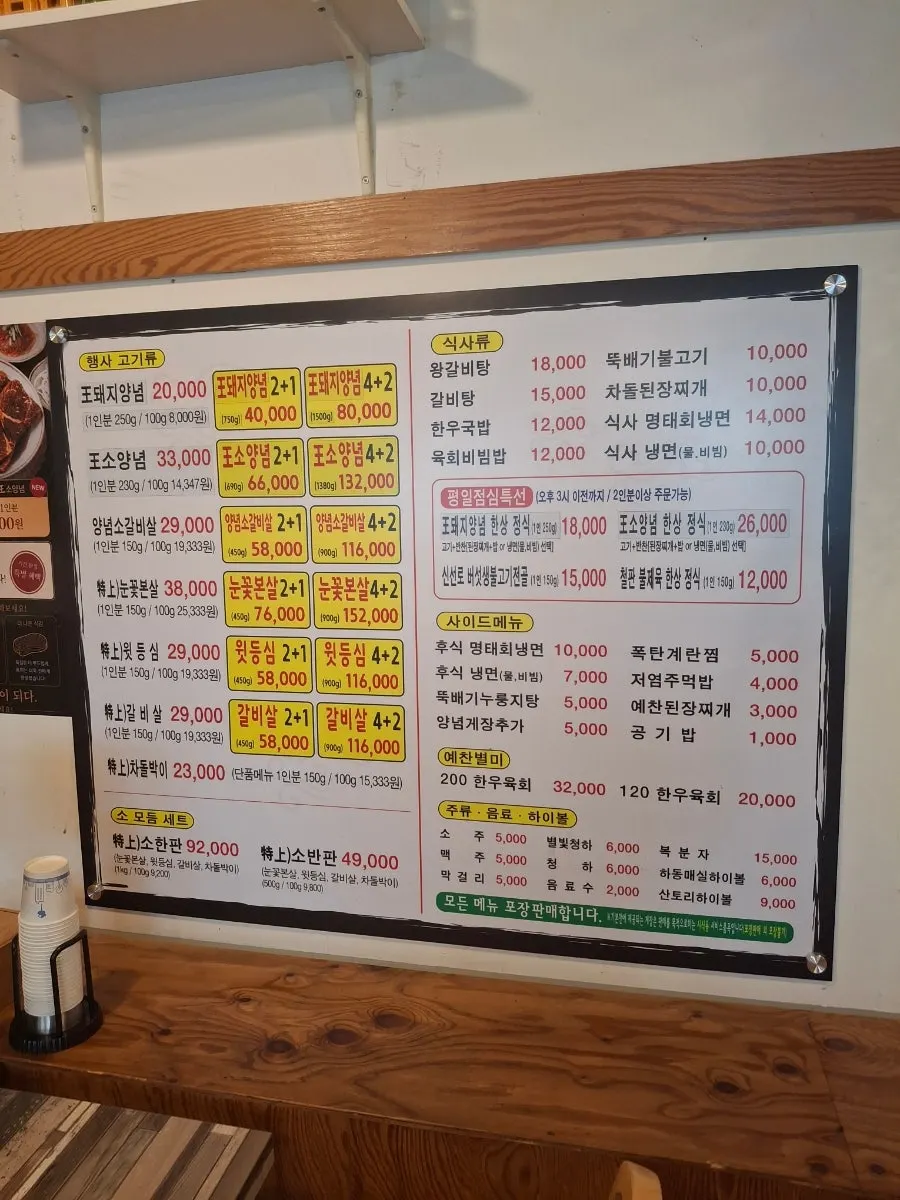 행사 고기류
王돼지양념 20,000
(1인분 250g / 100g 8,000원)
王돼지양념 2+1
(750g) 40,000
王돼지양념 4+2
(1500g) 80,000
王소양념 33,000
(1인분 230g / 100g 14,347원)
王소양념 2+1
(690g) 66,000
王소양념 4+2
(1380g) 132,000
양념소갈비살 29,000
(1인분 150g / 100g 19,333원)
양념소갈비살 2+1
(450g) 58,000
양념소갈비살 4+2
(900g) 116,000
특上)눈꽃본살 38,000
(1인분 150g / 100g 25,333원)
눈꽃본살 2+1
(450g) 76,000
눈꽃본살 4+2
(900g) 152,000
特上)윗등심 29,000
(1인분 150g / 100g 19,333원)
윗등심 2+1
(450g) 58,000
윗등심 4+2
(900g) 116,000
特上)갈비살 29,000
(1인분 150g / 100g 19,333원)
갈비살 2+1
(450g) 58,000
갈비살 4+2
(900g) 116,000
特上)차돌박이 23,000 (단품메뉴 1인분 150g / 100g 15,333원)
소 모듬 세트
特上)소한판 92,000
(눈꽃본살, 윗등심, 갈비살, 차돌박이)
(1kg / 100g 9,200)
特上)소반판 49,000
(눈꽃본살, 윗등심, 갈비살, 차돌박이)
(500g / 100g 9,800)
식사류
왕갈비탕 18,000 뚝배기불고기 10,000
갈비탕 15,000 차돌된장찌개 10,000
한우국밥 12,000 식사 명태회냉면 14,000
육회비빔밥 12,000 식사 냉면(물,비빔) 10,000
평일점심특선 (오후 3시 이전까지 / 2인분이상 주문가능)
王돼지양념 한상 정식(1인 250g) 18,000 王소양념 한상 정식(1인 230g) 26,000
고기+반찬(된장찌개+밥 or 냉면(물,비빔) 선택) 고기+반찬(된장찌개+밥 or 냉면(물,비빔) 선택)
신선로 버섯생불고기전골(1인 150g) 15,000 철판 불제육 한상 정식(1인 150g) 12,000
사이드메뉴
후식 명태회냉면 10,000 폭탄계란찜 5,000
후식 냉면(물,비빔) 7,000 저염주먹밥 4,000
뚝배기누룽지탕 5,000 예찬된장찌개 3,000
양념게장추가 5,000 공기밥 1,000
예찬별미
200 한우육회 32,000 120 한우육회 20,000
주류 · 음료 · 하이볼
소주 5,000 별빛청하 6,000 복분자 15,000
맥주 5,000 청하 6,000 하동매실하이볼 6,000
막걸리 5,000 음료수 2,000 산토리하이볼 9,000
모든 메뉴 포장판매합니다.
王소양념 NEW
이 되다.